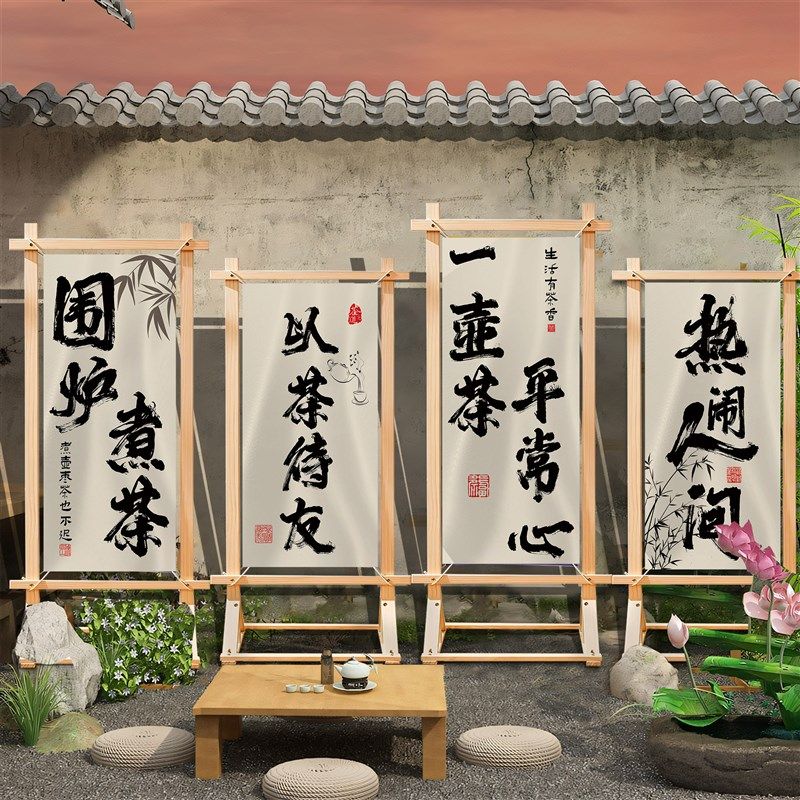 围炉
煮茶
煮壶枣茶也不迟
以茶待友
一壶茶
平常心
生活有茶香
热闹
人间